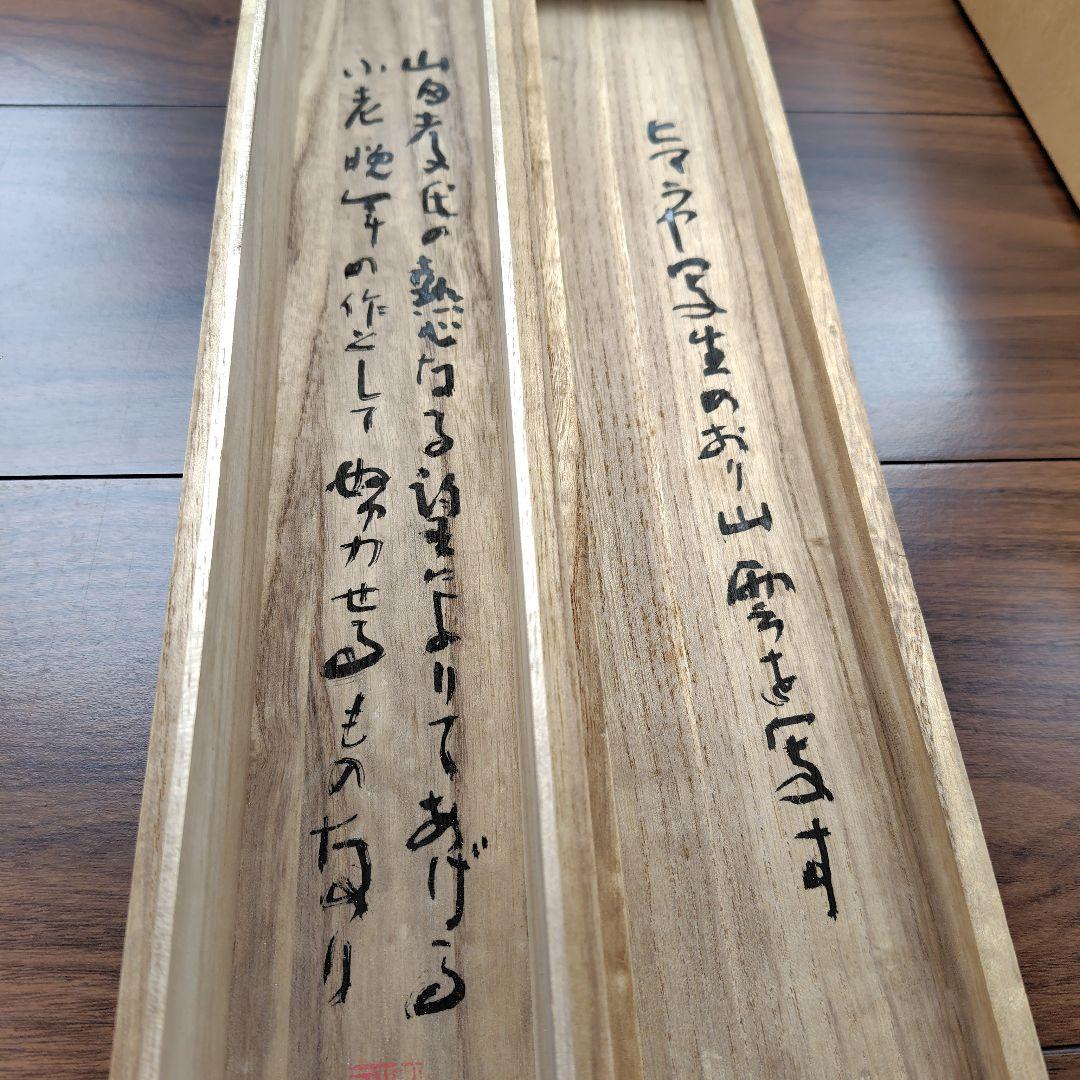 ヒマラヤー写生のおり山雲を写す
山田孝文氏の熱心なる望によりてあげる
小老晩年の作として努力せるものなり